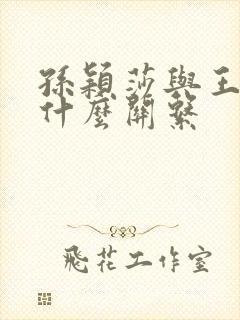 孫穎莎與王
什麼關繫
飛花工作室